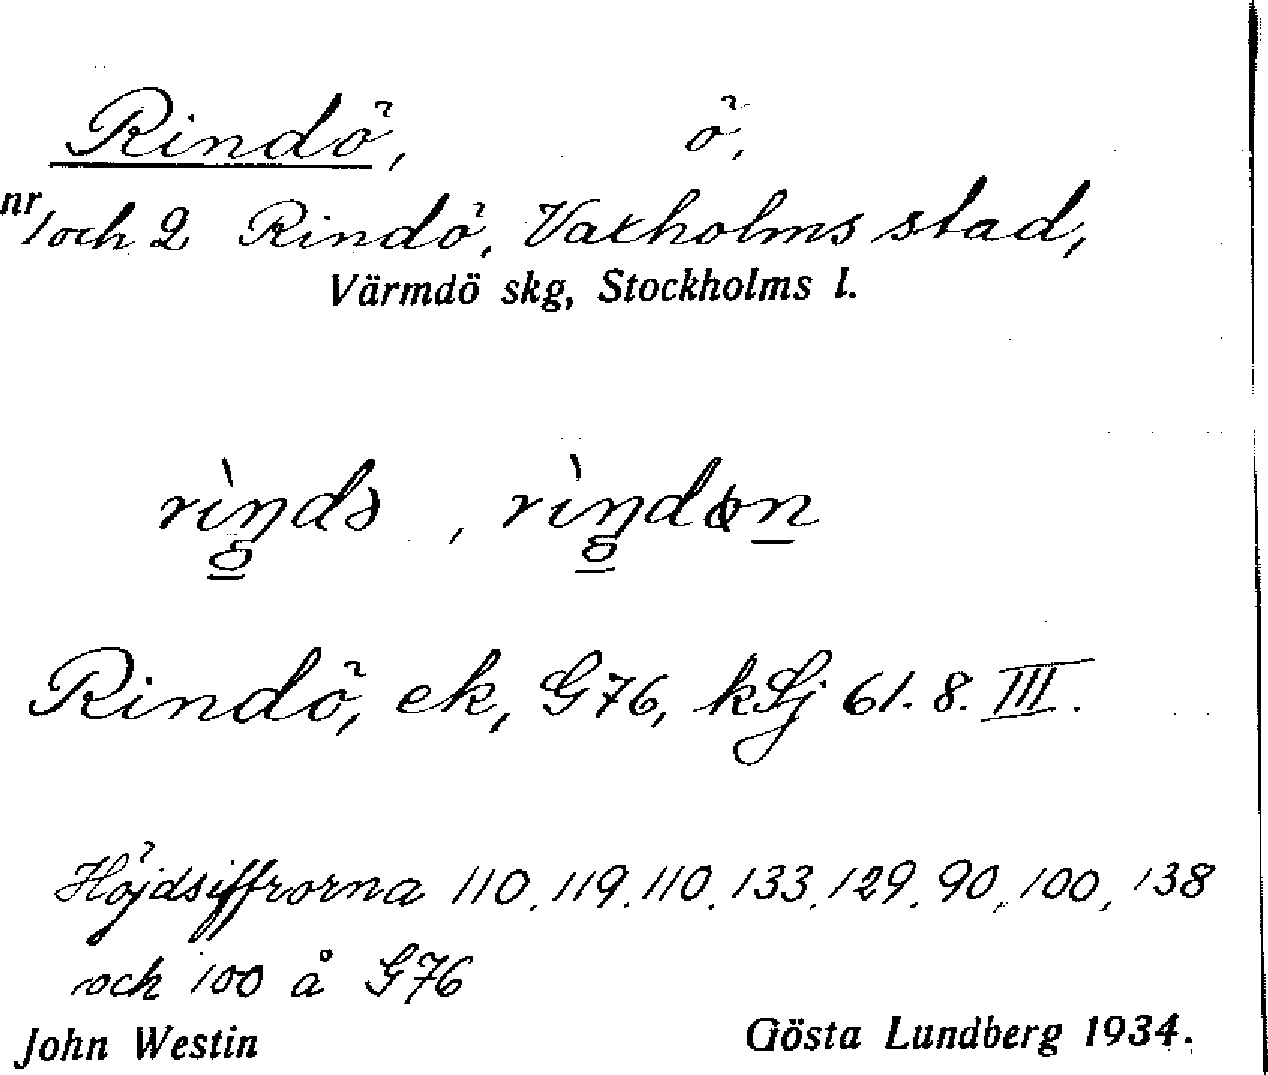 Rindö, ö,
nr 1 och 2 Rindö, Vaxholms stad,
Värmdö skg, Stockholms l.
Rindö, ek, G76, kSj 61. 8. III.
Höjdsiffrorna 110, 119, 110, 133, 129, 90, 100, 138
och 100 å G76
John Westin Gösta Lundberg 1934.